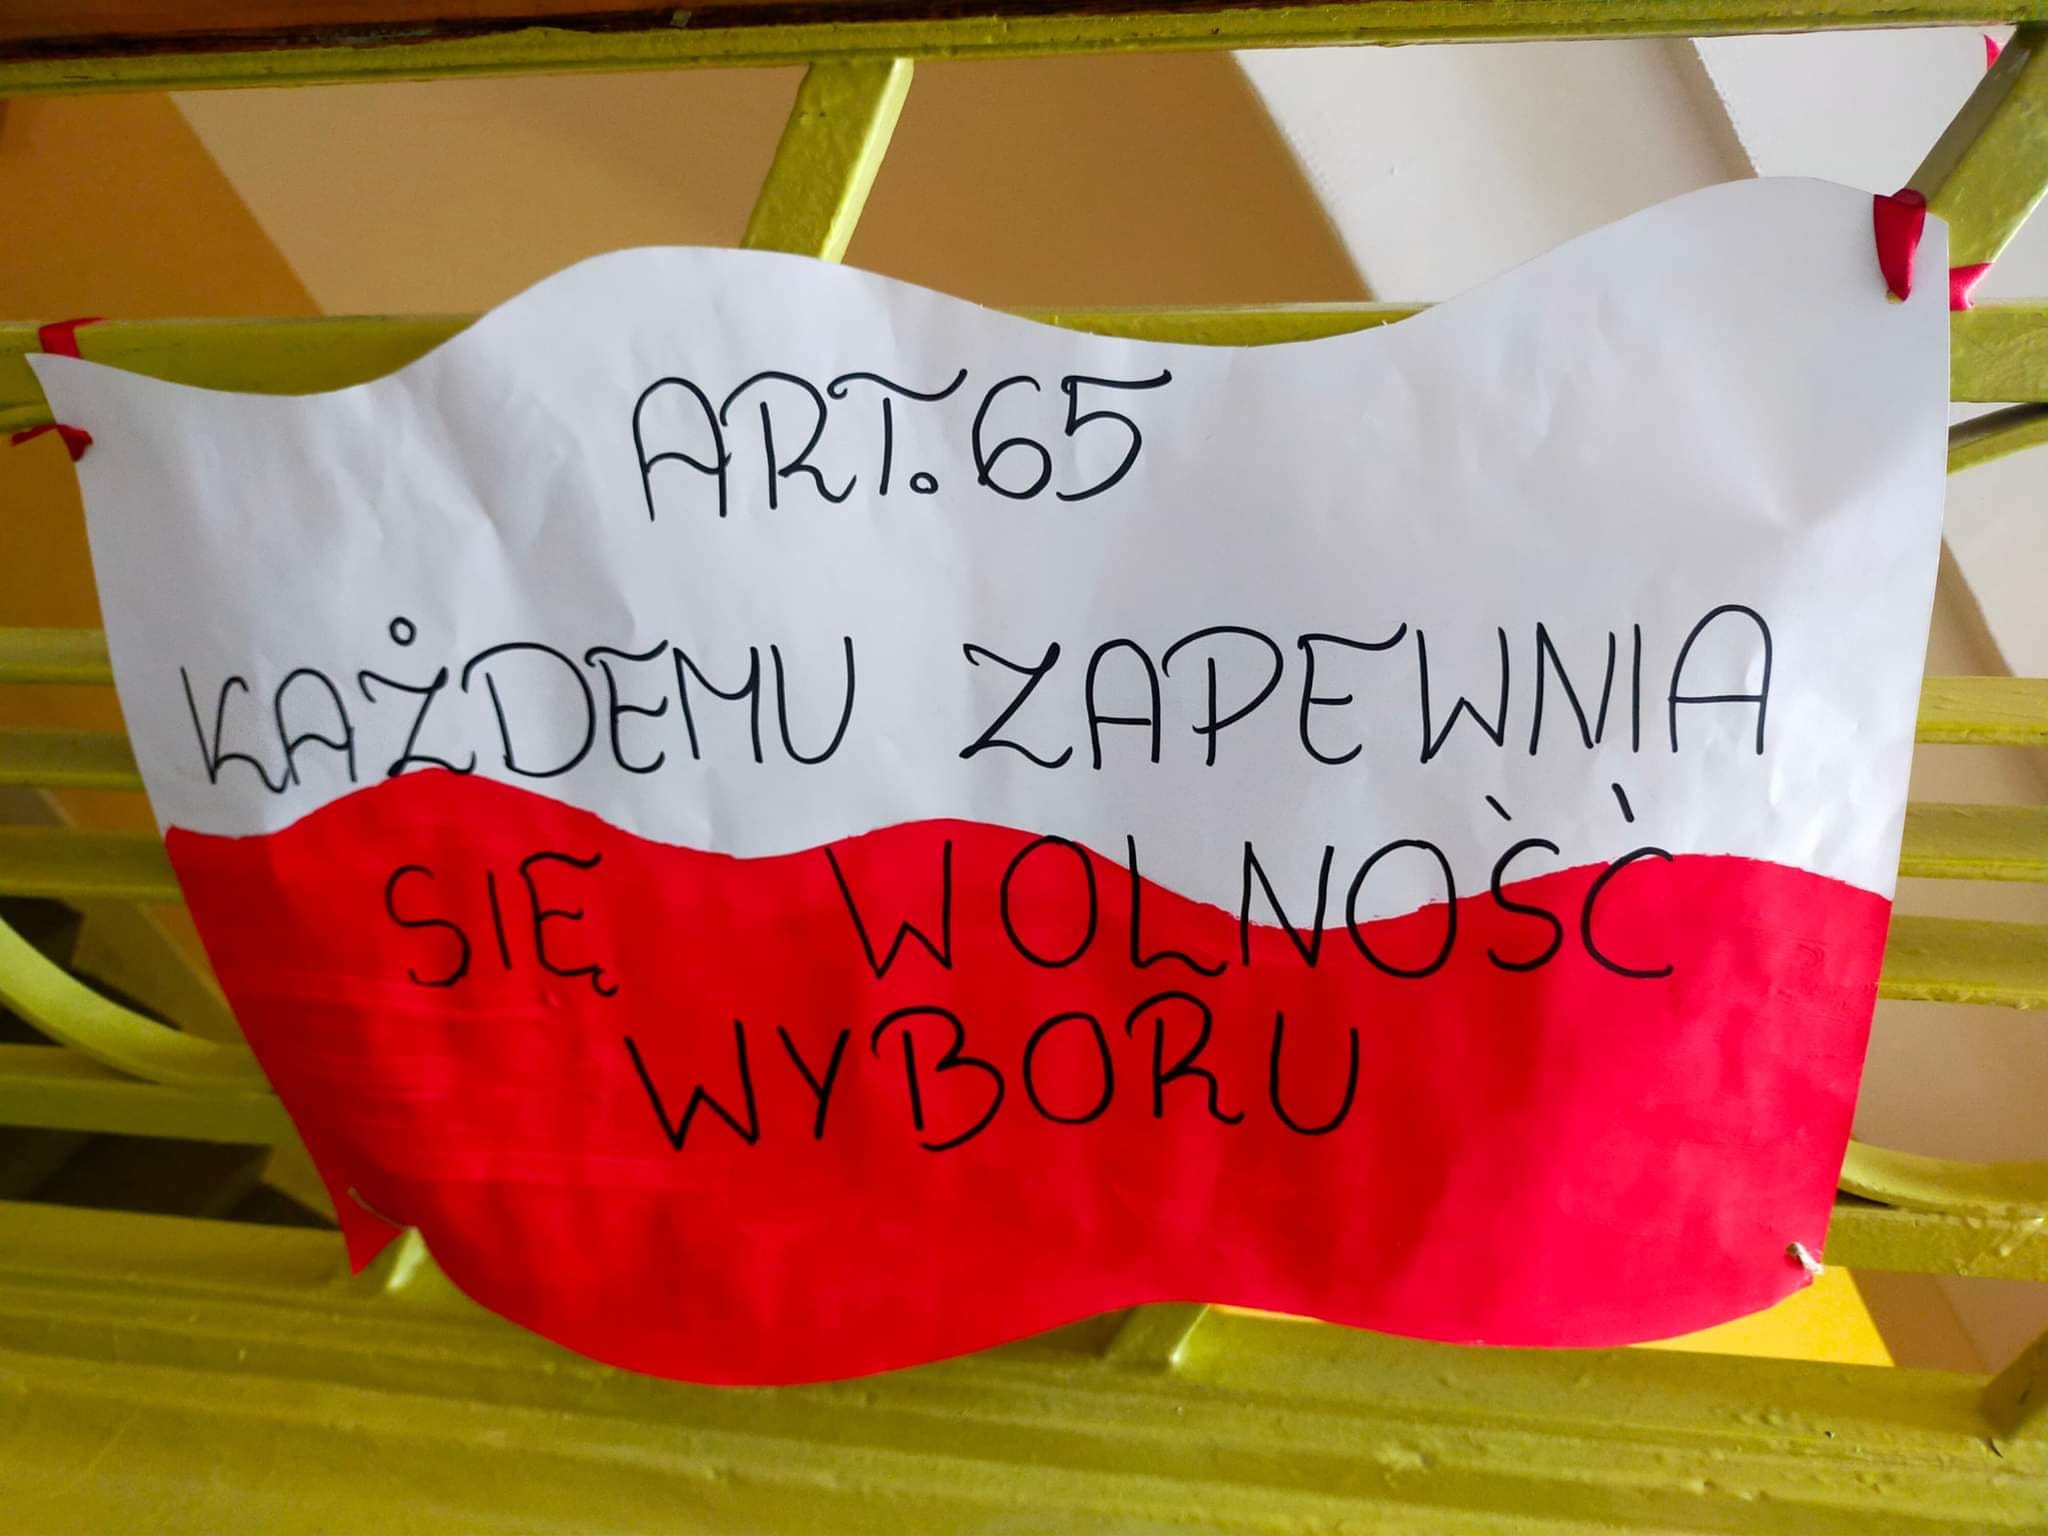 ART. 65
KAŻDEMU ZAPEWNIA
SIĘ WOLNOŚĆ
WYBORU